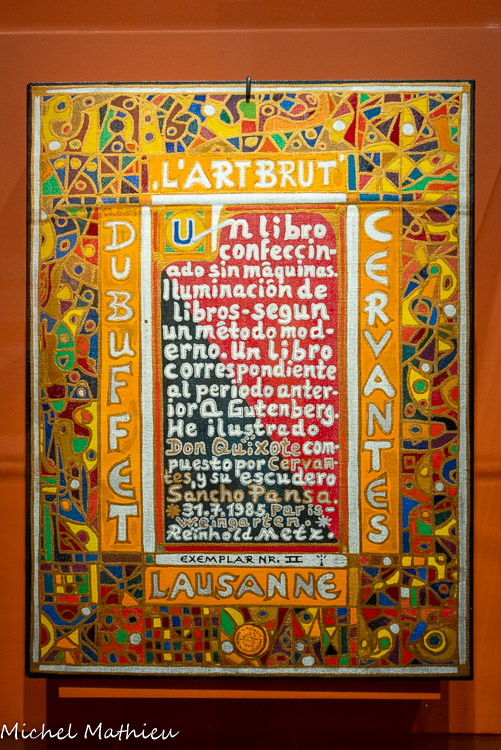 "L'ART BRUT"
DUBUFFET
CERVANTES
Un libro
confeccin-
ado sin máquinas.
Iluminación de
libros-segun
un método mod-
erno. Un libro
correspondiente
al periodo anter-
ior a Gutenberg.
He ilustrado
Don Quixote com-
puesto por Cervan-
tes, y su escudero
Sancho Pansa.
*31.7.1985, Paris-
weingarten.*
Reinhold Metz
EXEMPLAR NR. II
LAUSANNE
Michel Mathieu